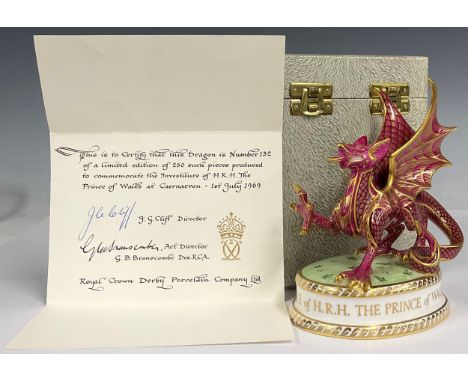 This is to Certify that this Dragon is Number 132
of a limited edition of 250 such pieces produced
to commemorate the Investiture of H.R.H. The
Prince of Wales at Caernarvon - 1st July 1969
J.G. Cliff Director
Art Director
G. B. Branscombe Des.R.C.A.
Royal Crown Derby Porcelain Company Ltd.
of H.R.H. THE PRINCE of